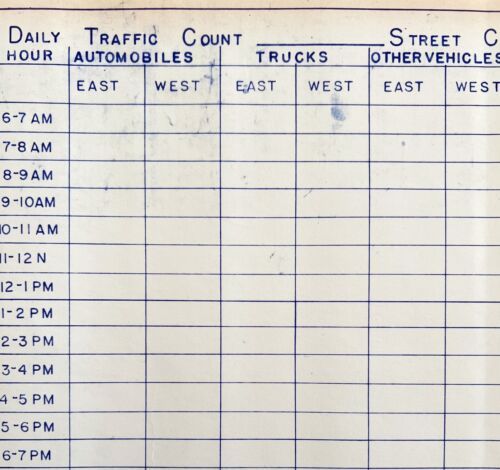 DAILY TRAFFIC COUNT ____________ STREET C
HOUR AUTOMOBILES TRUCKS OTHER VEHICLES
EAST WEST EAST WEST EAST WEST
6-7 AM
7-8 AM
8-9 AM
9-10 AM
10-11 AM
11-12 N
12-1 PM
1-2 PM
2-3 PM
3-4 PM
4-5 PM
5-6 PM
6-7 PM